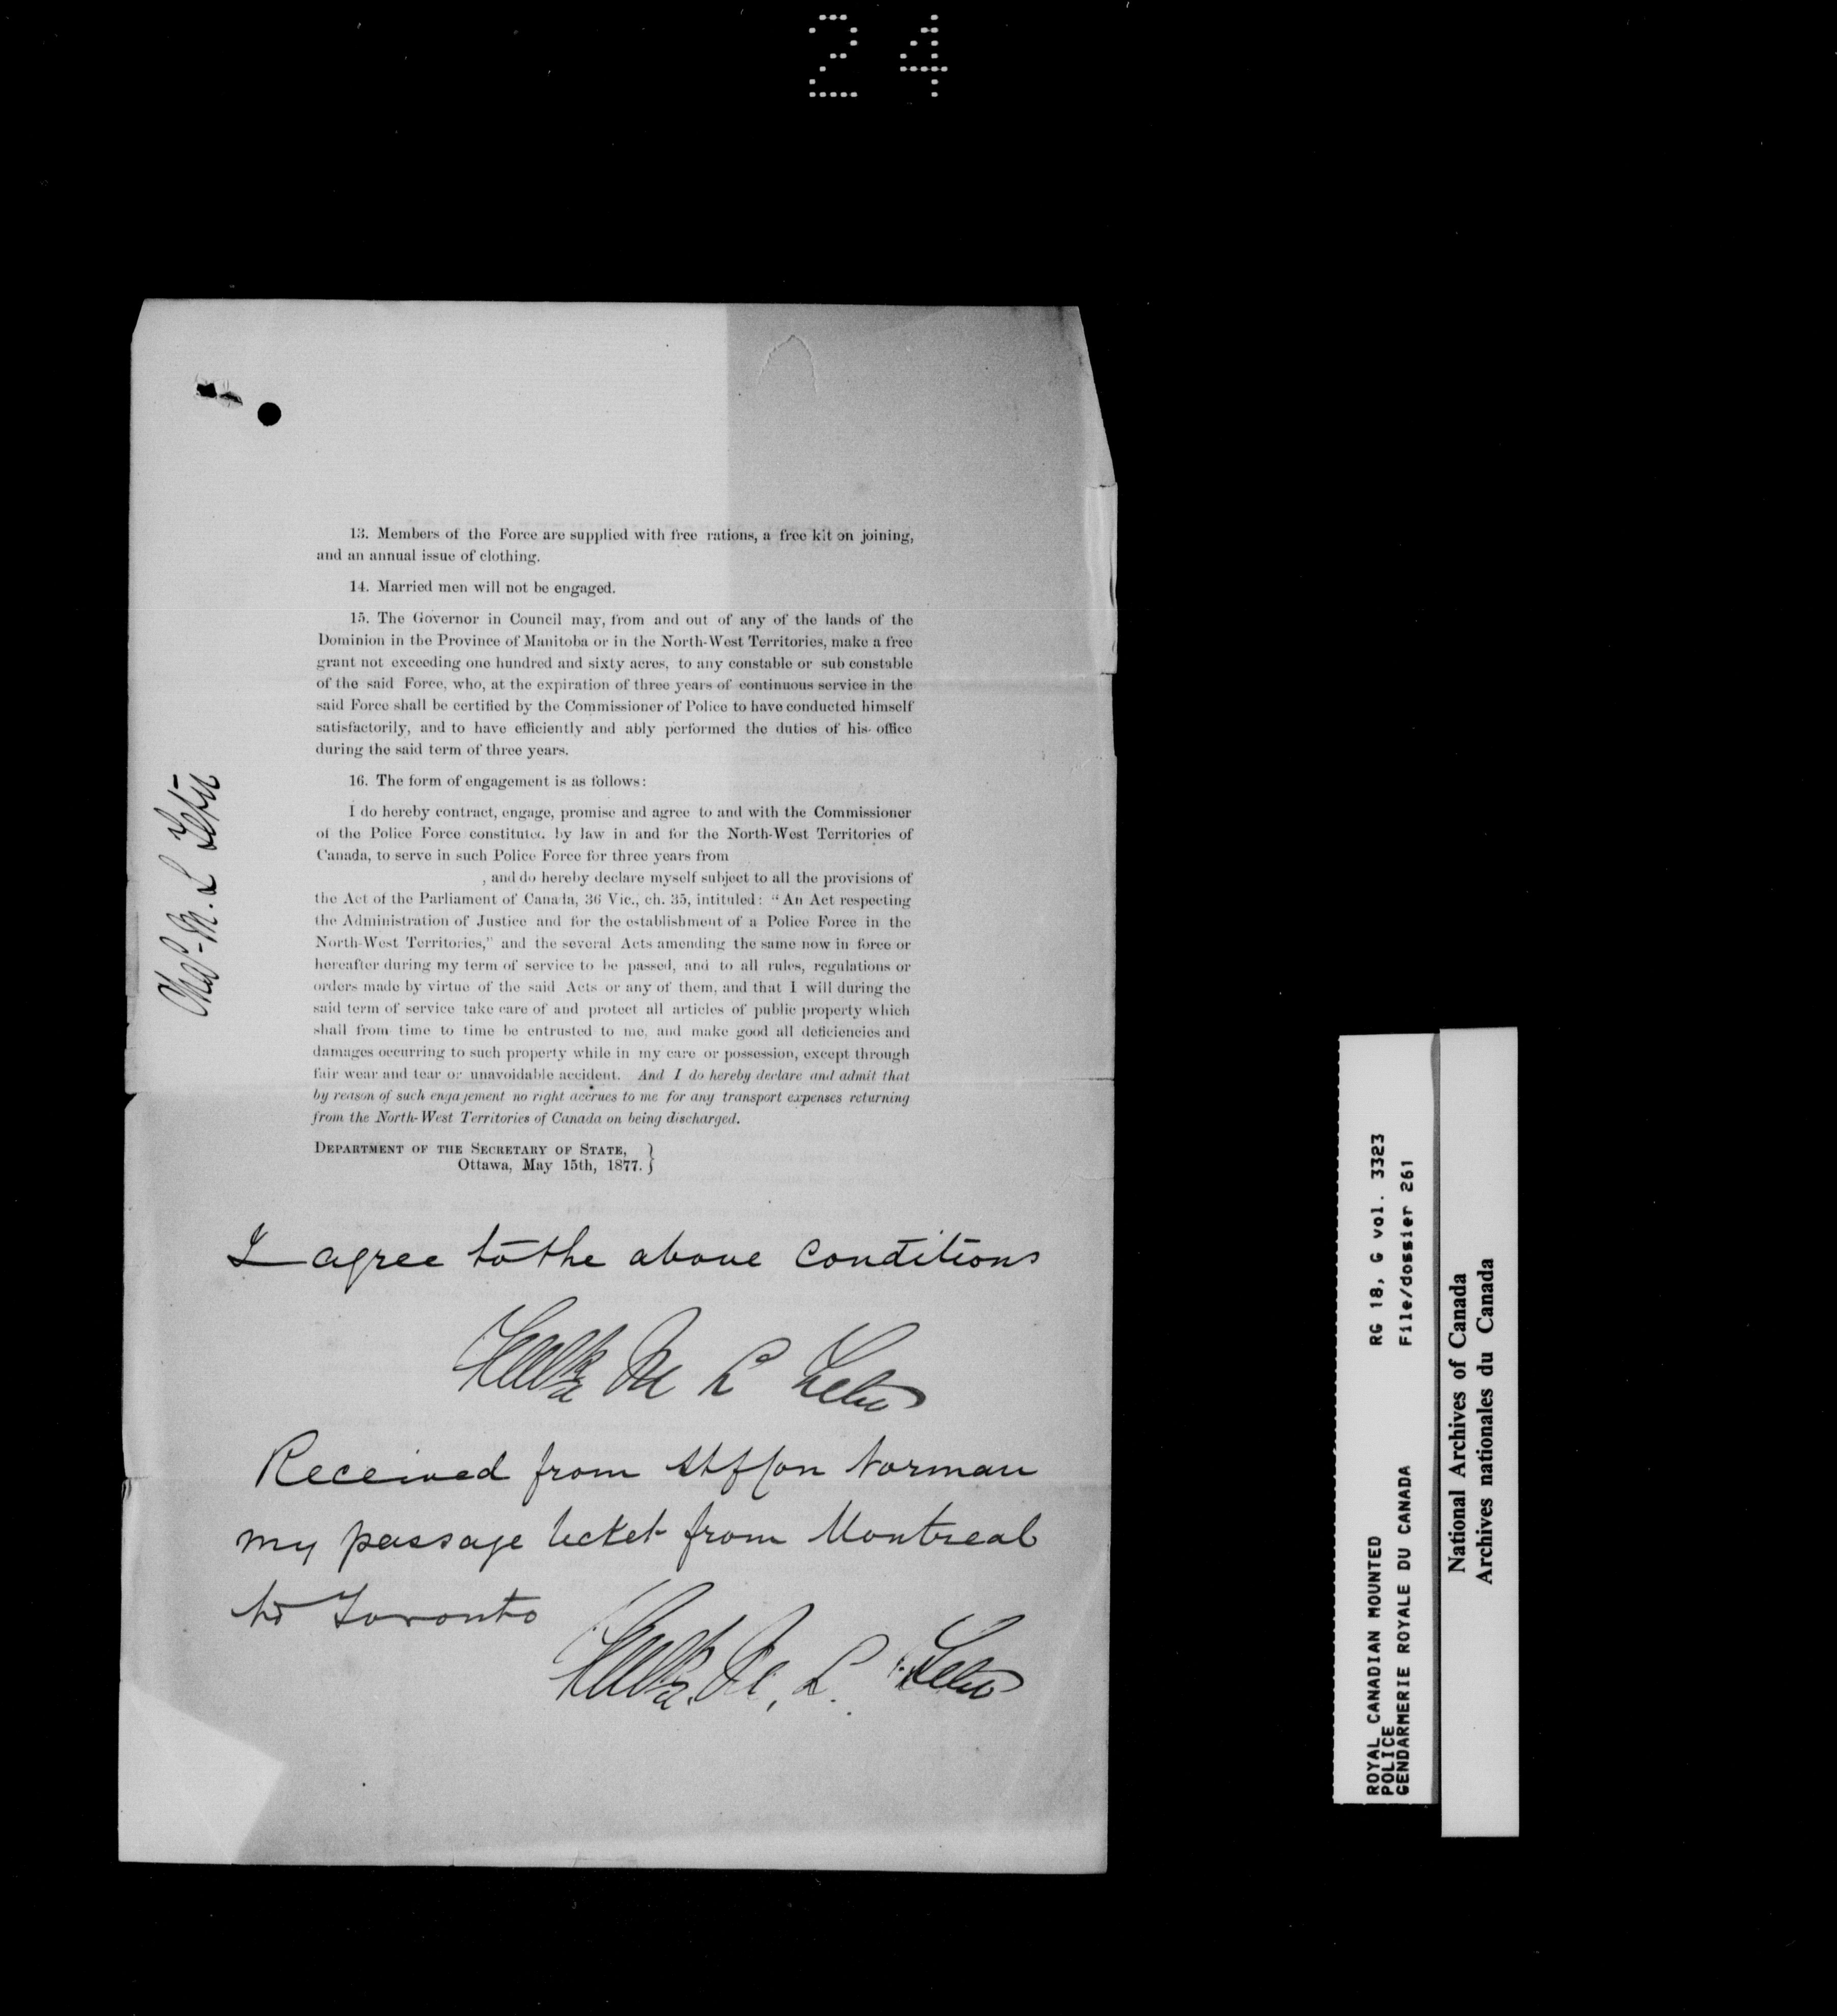 24
13. Members of the Force are supplied with free rations, a free kit on joining,
and an annual issue of clothing.
14. Married men will not be engaged.
15. The Governor in Council may, from and out of any of the lands of the
Dominion in the Province of Manitoba or in the North-West Territories, make a free
grant not exceeding one hundred and sixty acres, to any constable or sub constable
of the said Force, who, at the expiration of three years of continuous service in the
said Force shall be certified by the Commissioner of Police to have conducted himself
satisfactorily, and to have efficiently and ably performed the duties of his office
during the said term of three years.
16. The form of engagement is as follows:
I do hereby contract, engage, promise and agree to and with the Commissioner
of the Police Force constituted by law in and for the North-West Territories of
Canada, to serve in such Police Force for three years from
, and do hereby declare myself subject to all the provisions of
the Act of the Parliament of Canada, 36 Vic., ch. 35, intituled: "An Act respecting
the Administration of Justice and for the establishment of a Police Force in the
North-West Territories," and the several Acts amending the same now in force or
hereafter during my term of service to be passed, and to all rules, regulations or
orders made by virtue of the said Acts or any of them, and that I will during the
said term of service take care of and protect all articles of public property which
shall from time to time be entrusted to me, and make good all deficiencies and
damages occurring to such property while in my care or possession, except through
fair wear and tear or unavoidable accident. And I do hereby declare and admit that
by reason of such engagement no right accrues to me for any transport expenses returning
from the North-West Territories of Canada on being discharged.
DEPARTMENT OF THE SECRETARY OF STATE, }
Ottawa, May 15th, 1877.
I agree to the above conditions
M L
Received from Norman
my passage ticket from Montreal
to Toronto
M. L.
Chas. M. L
ROYAL CANADIAN MOUNTED RG 18, G vol. 3323
POLICE
GENDARMERIE ROYALE DU CANADA File/dossier 261
National Archives of Canada
Archives nationales du Canada